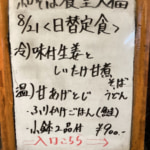 そば食堂大福
8/21<日替定食>
冷)味付生姜と
しいたけ甘煮
温)甘あげとじ そば
うどん
ふりかけごはん(鮭)
小鉢2品付 ¥900-
入口こちら→